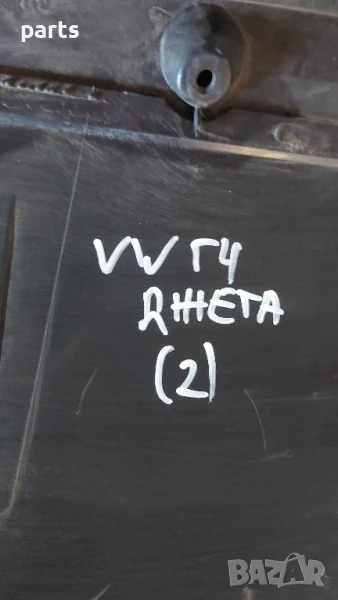 parts
VW Г4
ДЖЕТА
(2)
BAZAR